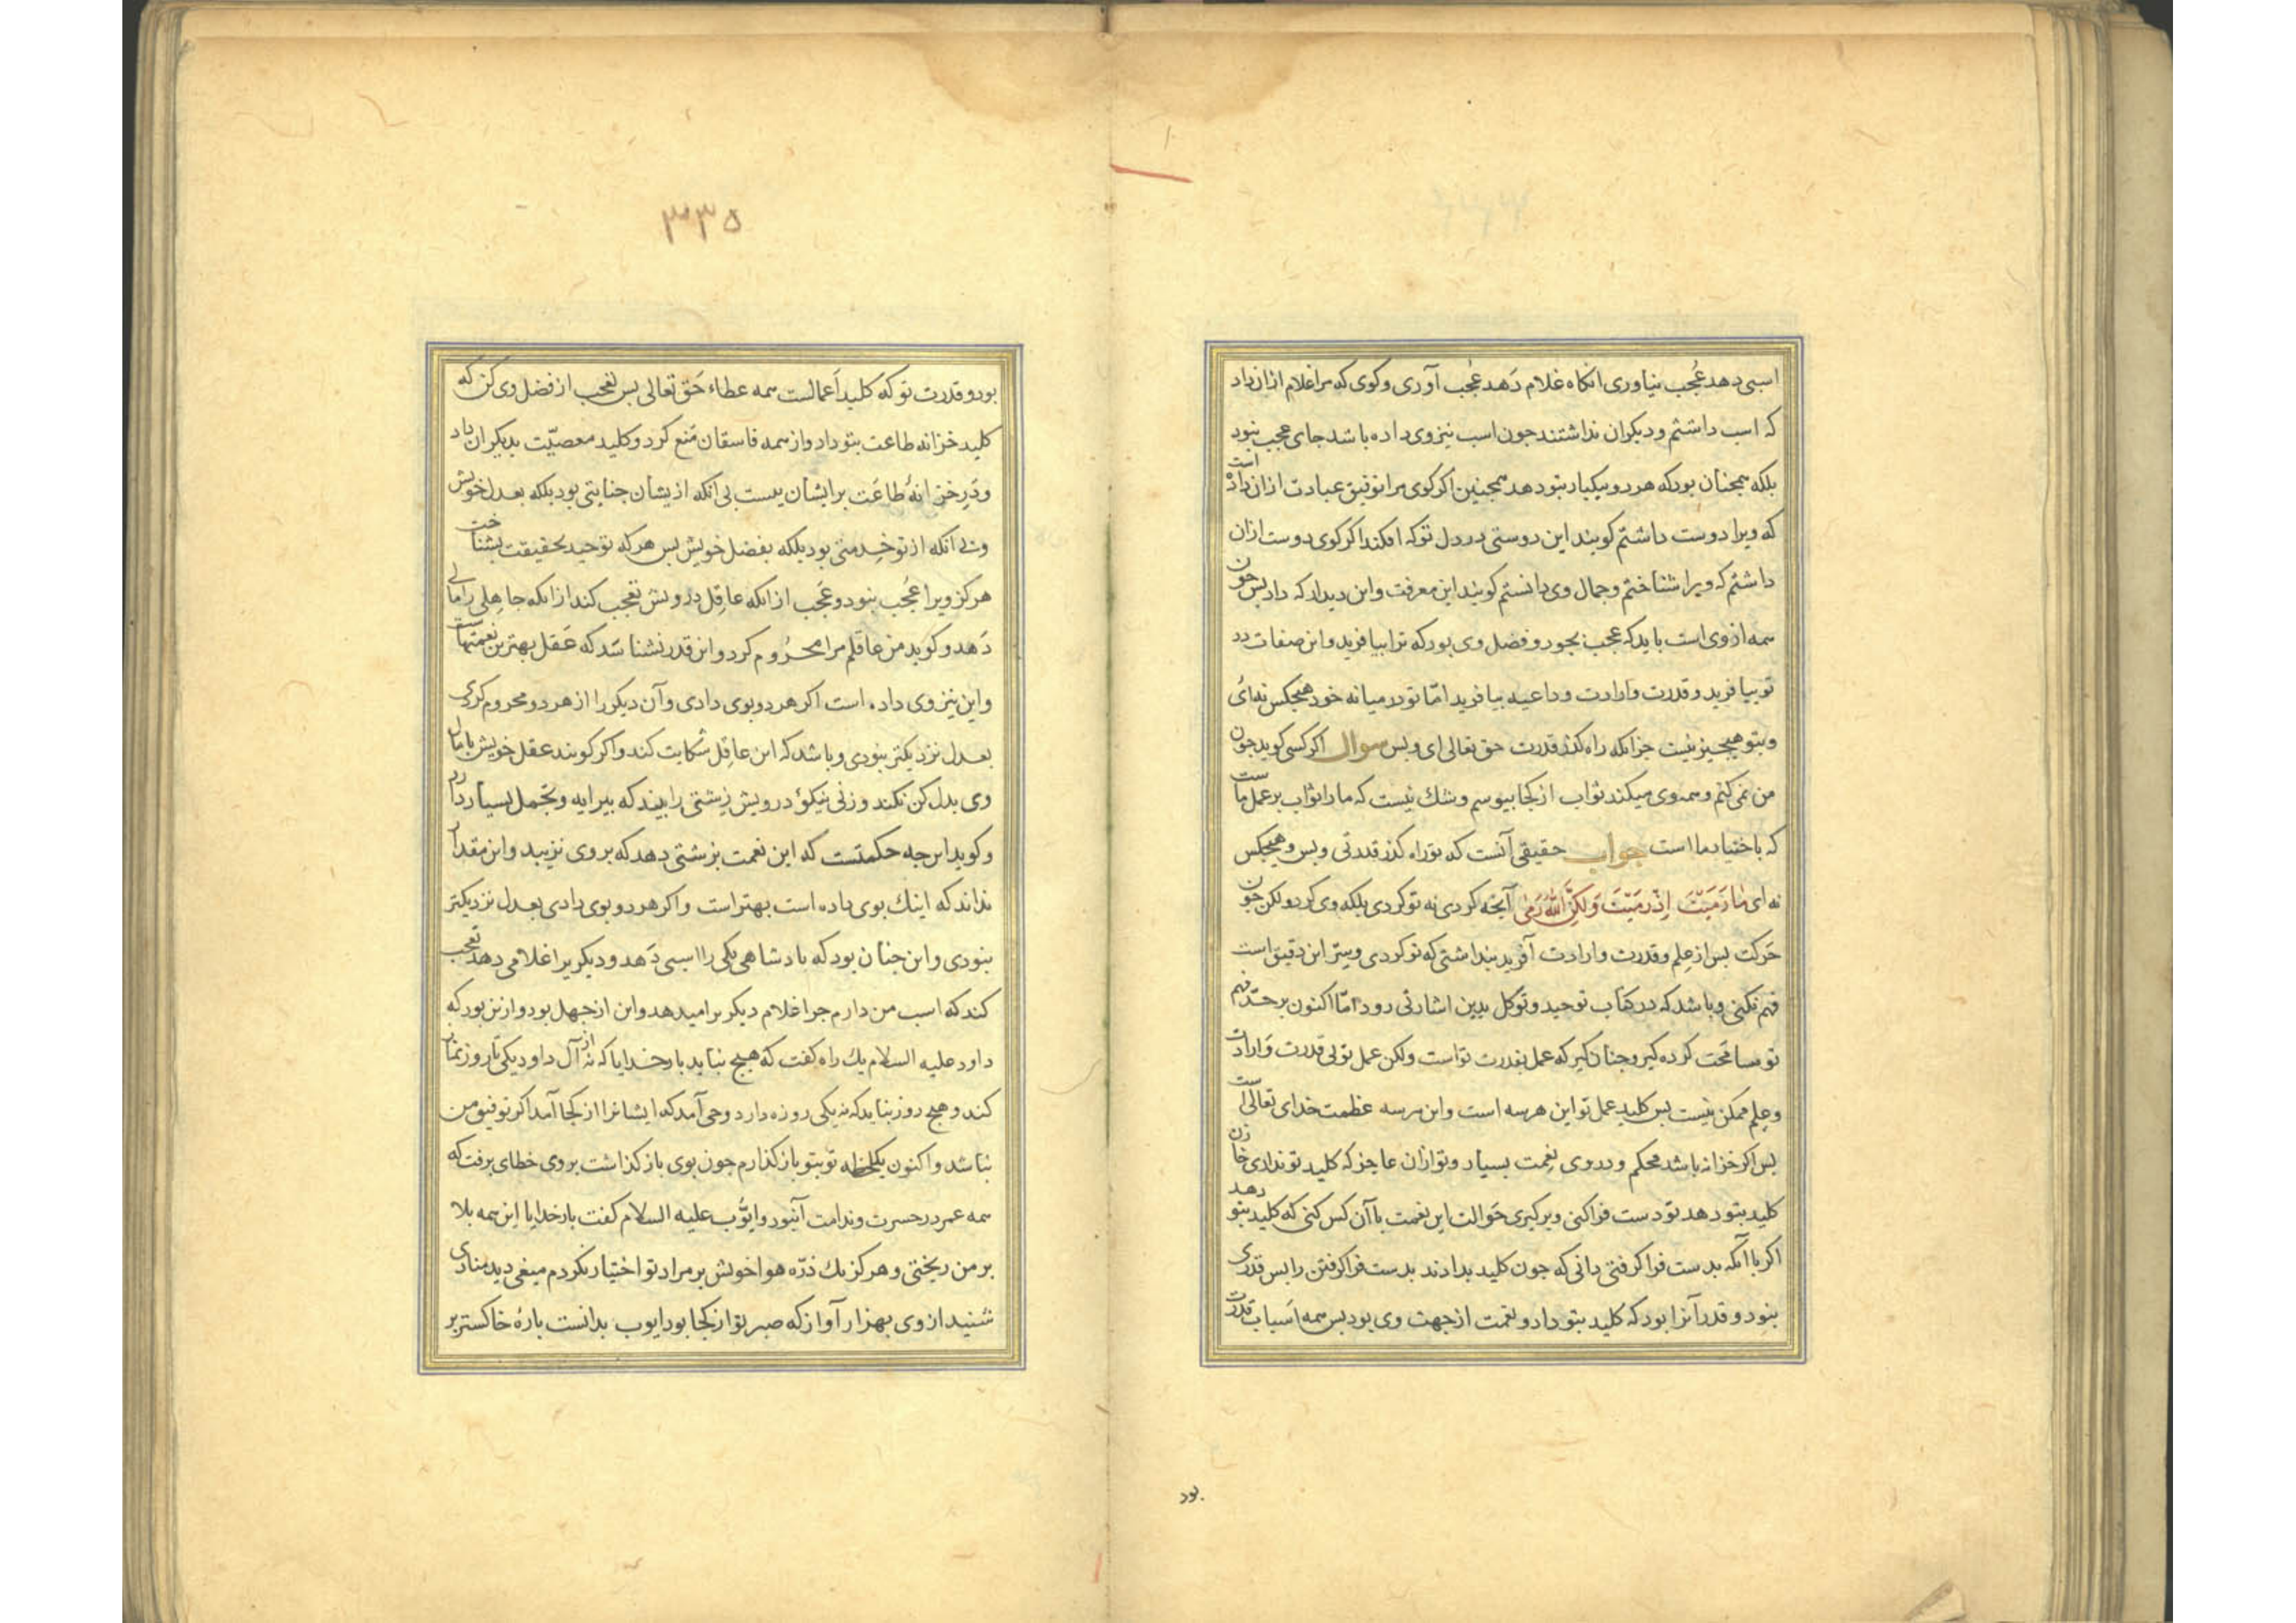 اسبی دهد عُجب نیاوری انکاه غلام دَهد عُجب آوری و کوی که مرا غلام ازان داد
که اسب داشتم و دیکران نداشتند جون اسب نیز وی داده باشد جای عجب نبود
بلکه همجنان بود که هر دو بیکبار بتو دهد همجنین اکر کوی مرا توفیق عبادت ازان داده است
که ویرا دوست داشتم کویند این دوستی در دل تو که افکند اکر کوی دوست ازان
داشتم که ویرا شناختم و جمال وی دانستم کویند این معرفت و این دیدار که داد بس جون
همه از وی است باید که عجب بجود و فضل وی بود که ترا بیافرید و این صفات در
تو بیافرید و قدرت و ارادت و داعیه بیافرید امّا تو در میانه خود هیجکس نه‌ای
و بتو هیجیز نیست جز انکه راه کذر قدرت حق تعالی ای و بس سوال اکر کسی کوید جون
من نمی کنم و همه وی میکند ثواب از کجا بیوسم و شک نیست که ما را ثواب بر عمل ماست
که باختیار ما است جواب حقیقی آنست که تو راه کذر قدرتی و بس و هیجکس
نه ای مٰا رَمَیْتَ اِذْ رَمَیْتَ وَلکِنَّ اللّٰهَ رَمٰی آنجه کردی نه تو کردی بلکه وی کرد ولکن جون
حَرکت بس از عِلم و قدرت و ارادت آفرید بنداشتی که تو کردی و سِرّ این دقیق است
فهم نکنی و باشد که در کتاب توحید و توکل بدین اشارتی رود امّا اکنون بر حدّ فهم
تو مسامَحت کرده کیر و جنان کیر که عمل بقدرت تو است ولکن عمل تو بی قدرت وَ ارادت
و عِلم ممکن نیست بس کلید عمل تو این هر سه است و این هر سه عظمت خدای تعالی است
بس اکر خزانه باشد محکم و در وی نِعمت بسیار و تو ازان عاجز که کلید تو نداری خازن
کلید بتو دهد تو دست فرا کنی و برکیری حَوالت این نعمت با آن کس کنی که کلید بتو دهد
اکر با آنکه بدست فرا کرفتی دانی که جون کلید بدادند بدست فرا کرفتن را بس قدری
بنود و قدر آنرا بود که کلید بتو داد و نعمت از جهت وی بود بس همه اَسباب قدرت
بود
۳۳۵
بود و قدرت تو که کلید اَعمالست همه عطاء حَق تعالی بس تعجب از فضل وی کن که
کلید خزانه طاعت بتو داد و از همه فاسقان مَنع کرد و کلید معصیّت بدیکران داد
و دَرِ خزانهٔ طاعَت بر ایشان ببست بی انکه از یشان جنایتی بود بلکه بعدل خویش
و بی انکه از تو خِدمتی بود بلکه بفضل خویش بس هر که توحید بحقیقت بشناخت
هرکز ویرا عُجب بنود و عَجَب از انکه عاقِل درویش تعجب کند از انکه جاهِلی را مالی
دَهد و کوید من عاقلم مرا محرُوم کرد و این قدر نشناسَد که عَقل بهترین نعمتهاست
و این نیز وی داده است اکر هر دو بوی دادی و آن دیکر را از هر دو محروم کردی
بعدل نزدیکتر بنودی و باشد که این عاقِل شکایت کند و اکر کویند عقل خویش با مال
وی بدل کن نکند و زنی نیکو درویش زِشتی را بیند که بیرایه و تجّمل بسیار دارد
و کوید این جه حکمتست که این نعمت بزشتی دهد که بر وی نزیبد و این مقدار
نداند که اینک بوی داده است بهتر است و اکر هر دو بوی دادی بعدل نزدیکتر
بنودی و این جنان بود که بادشاهی یکی را اسبی دَهد و دیکریرا غلامی دهد تعجب
کند که اسب من دارم جرا غلام دیکر برا میدهد و این از جهل بود و از ین بود که
داود علیه السلام یک راه کفت که هیج نیاید بار خدایا که نه از آل داود یکی تا روز نماز
کند و هیج روز نیاید که نه یکی روزه دارد وحی آمد که ایشانرا از کجا آمد اکر توفیق من
نباشد و اکنون یکلحظه تو بتو بازکذارم جون بوی بازکذاشت بر وی خطای برفت که
همه عمر در حسرت و ندامت آنبود و ایّوب علیه السلام کفت بار خدایا این همه بلا
بر من ریختی و هرکز یک ذرّه هواء خویش بر مراد تو اختیار نکردم میغی دید منادی
شنید از وی بهزار آواز که صبر تو از کجا بود ایوب بدانست بارهٔ خاکستر بر